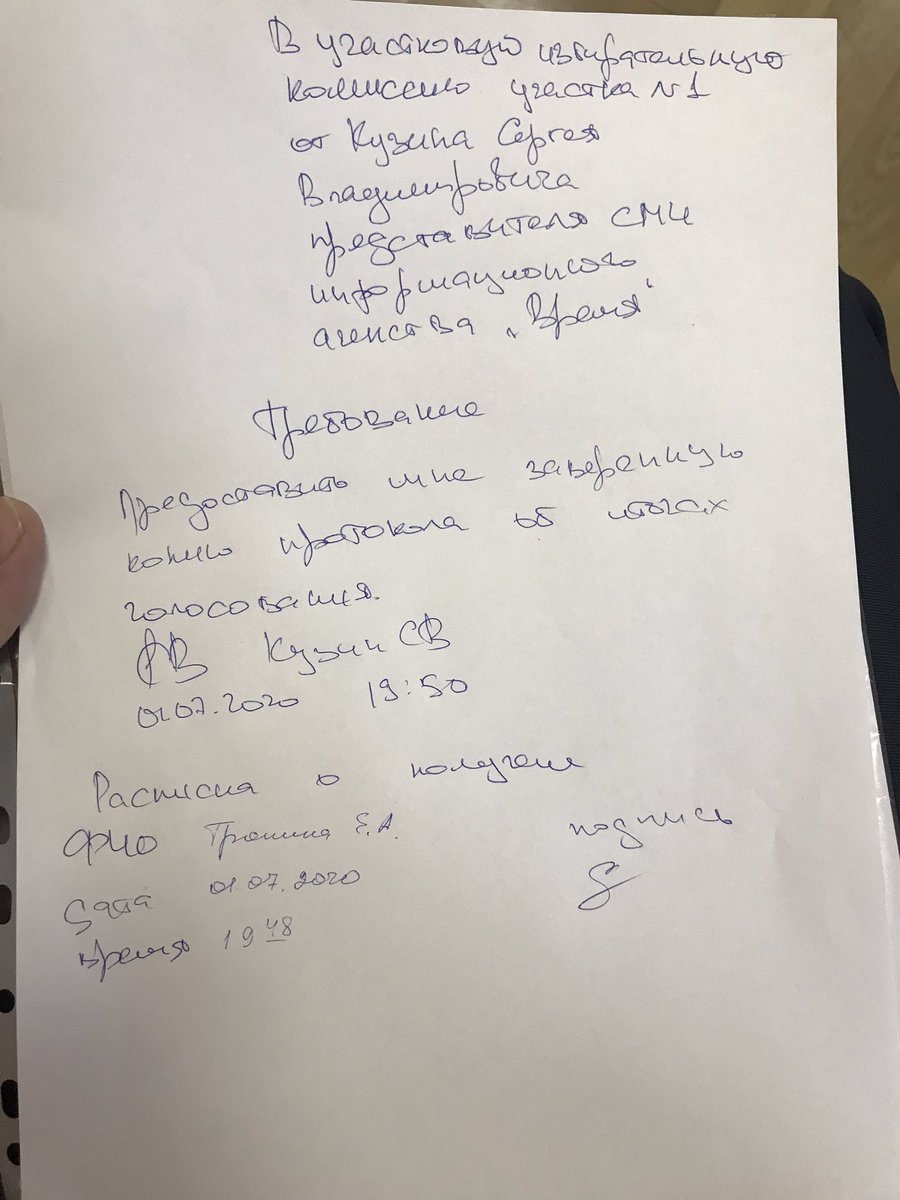 В участковую избирательную
комиссию участка №1
от Кузина Сергея
Владимировича
представителя СМИ
информационого
агенства „Время“
Требование
Предоставить мне заверенную
копию протокола об итогах
голосования.
Кузин СВ
01.07.2020 19:50
Расписка о получении
ФИО Тронина Е.А. подпись
дата 01.07.2020
время 19 48